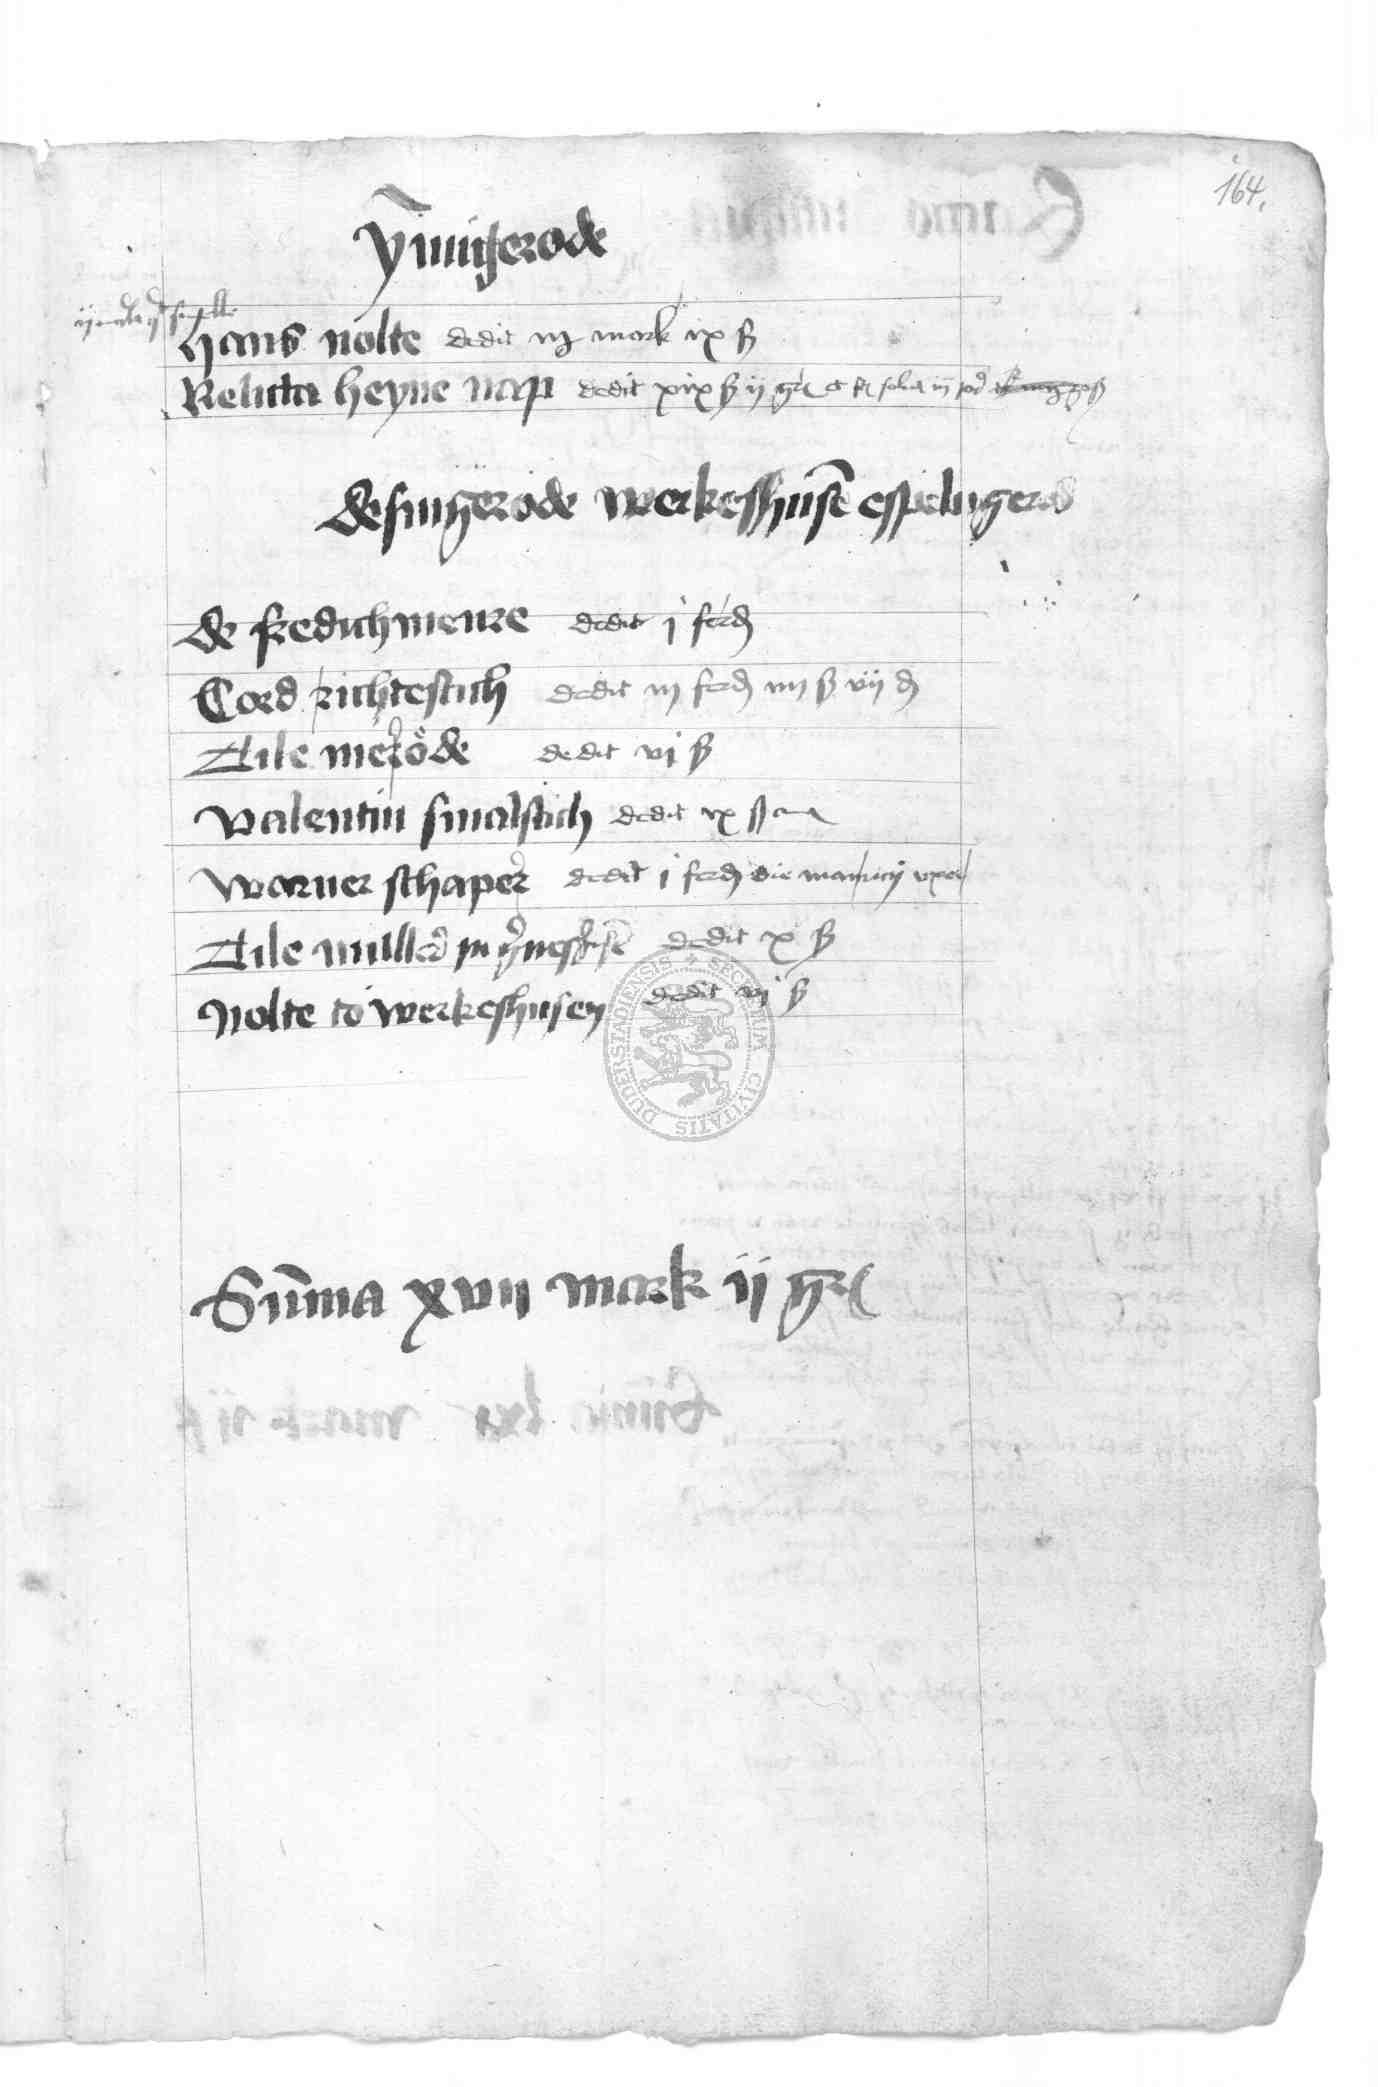 164.
ẏmigerode
Hans nolte dedit iij mark ix ß
Relicta heyne nap dedit xix ß ij gr
desingerode werkesshusē espelingerod
de fredichmeure dedit j ferd
Cord richtestich dedit iij ferd iiij ß vij d
Tile merode dedit vj ß
valentin smalstich dedit ix ß
worner schaper dedit j ferd die mauricij uxor
Tile muller dedit x ß
Nolte to werkeshusen dedit vj ß
SECRETUM CIVITATIS DUDERSTADIENSIS
Sūma xvij mark ij gr